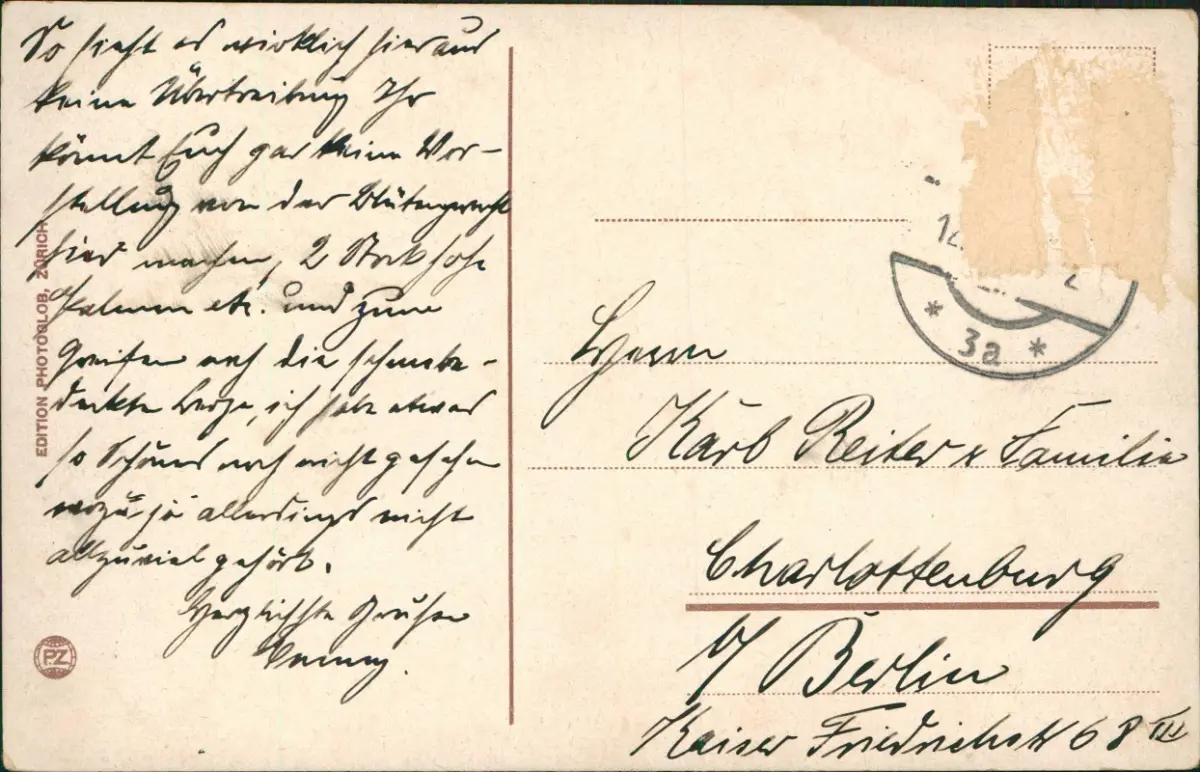 So sieht es wirklich hier aus
keine Übertreibung Ihr
könnt Euch gar keine Vor-
stellung von der Blütenpracht
hier machen, 2 Stock hohe
Palmen etc. und zum
Greifen nah die schneebe-
deckten Berge, ich habe etwas
so Schönes noch nicht gesehen
wozu ja allerdings nicht
allzuviel gehört.
Herzlichste Grüße
EDITION PHOTOGLOB, ZÜRICH
PZ
12.
2
* 3a *
Herrn
Karl Reiter & Familie
Charlottenburg
b/ Berlin
Kaiser Friedrichstr 68 III